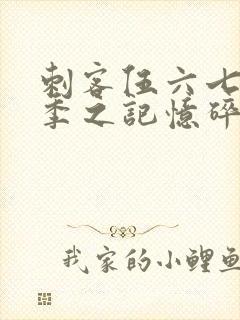 刺客伍六七
季之記憶碎
我家的小鯉魚